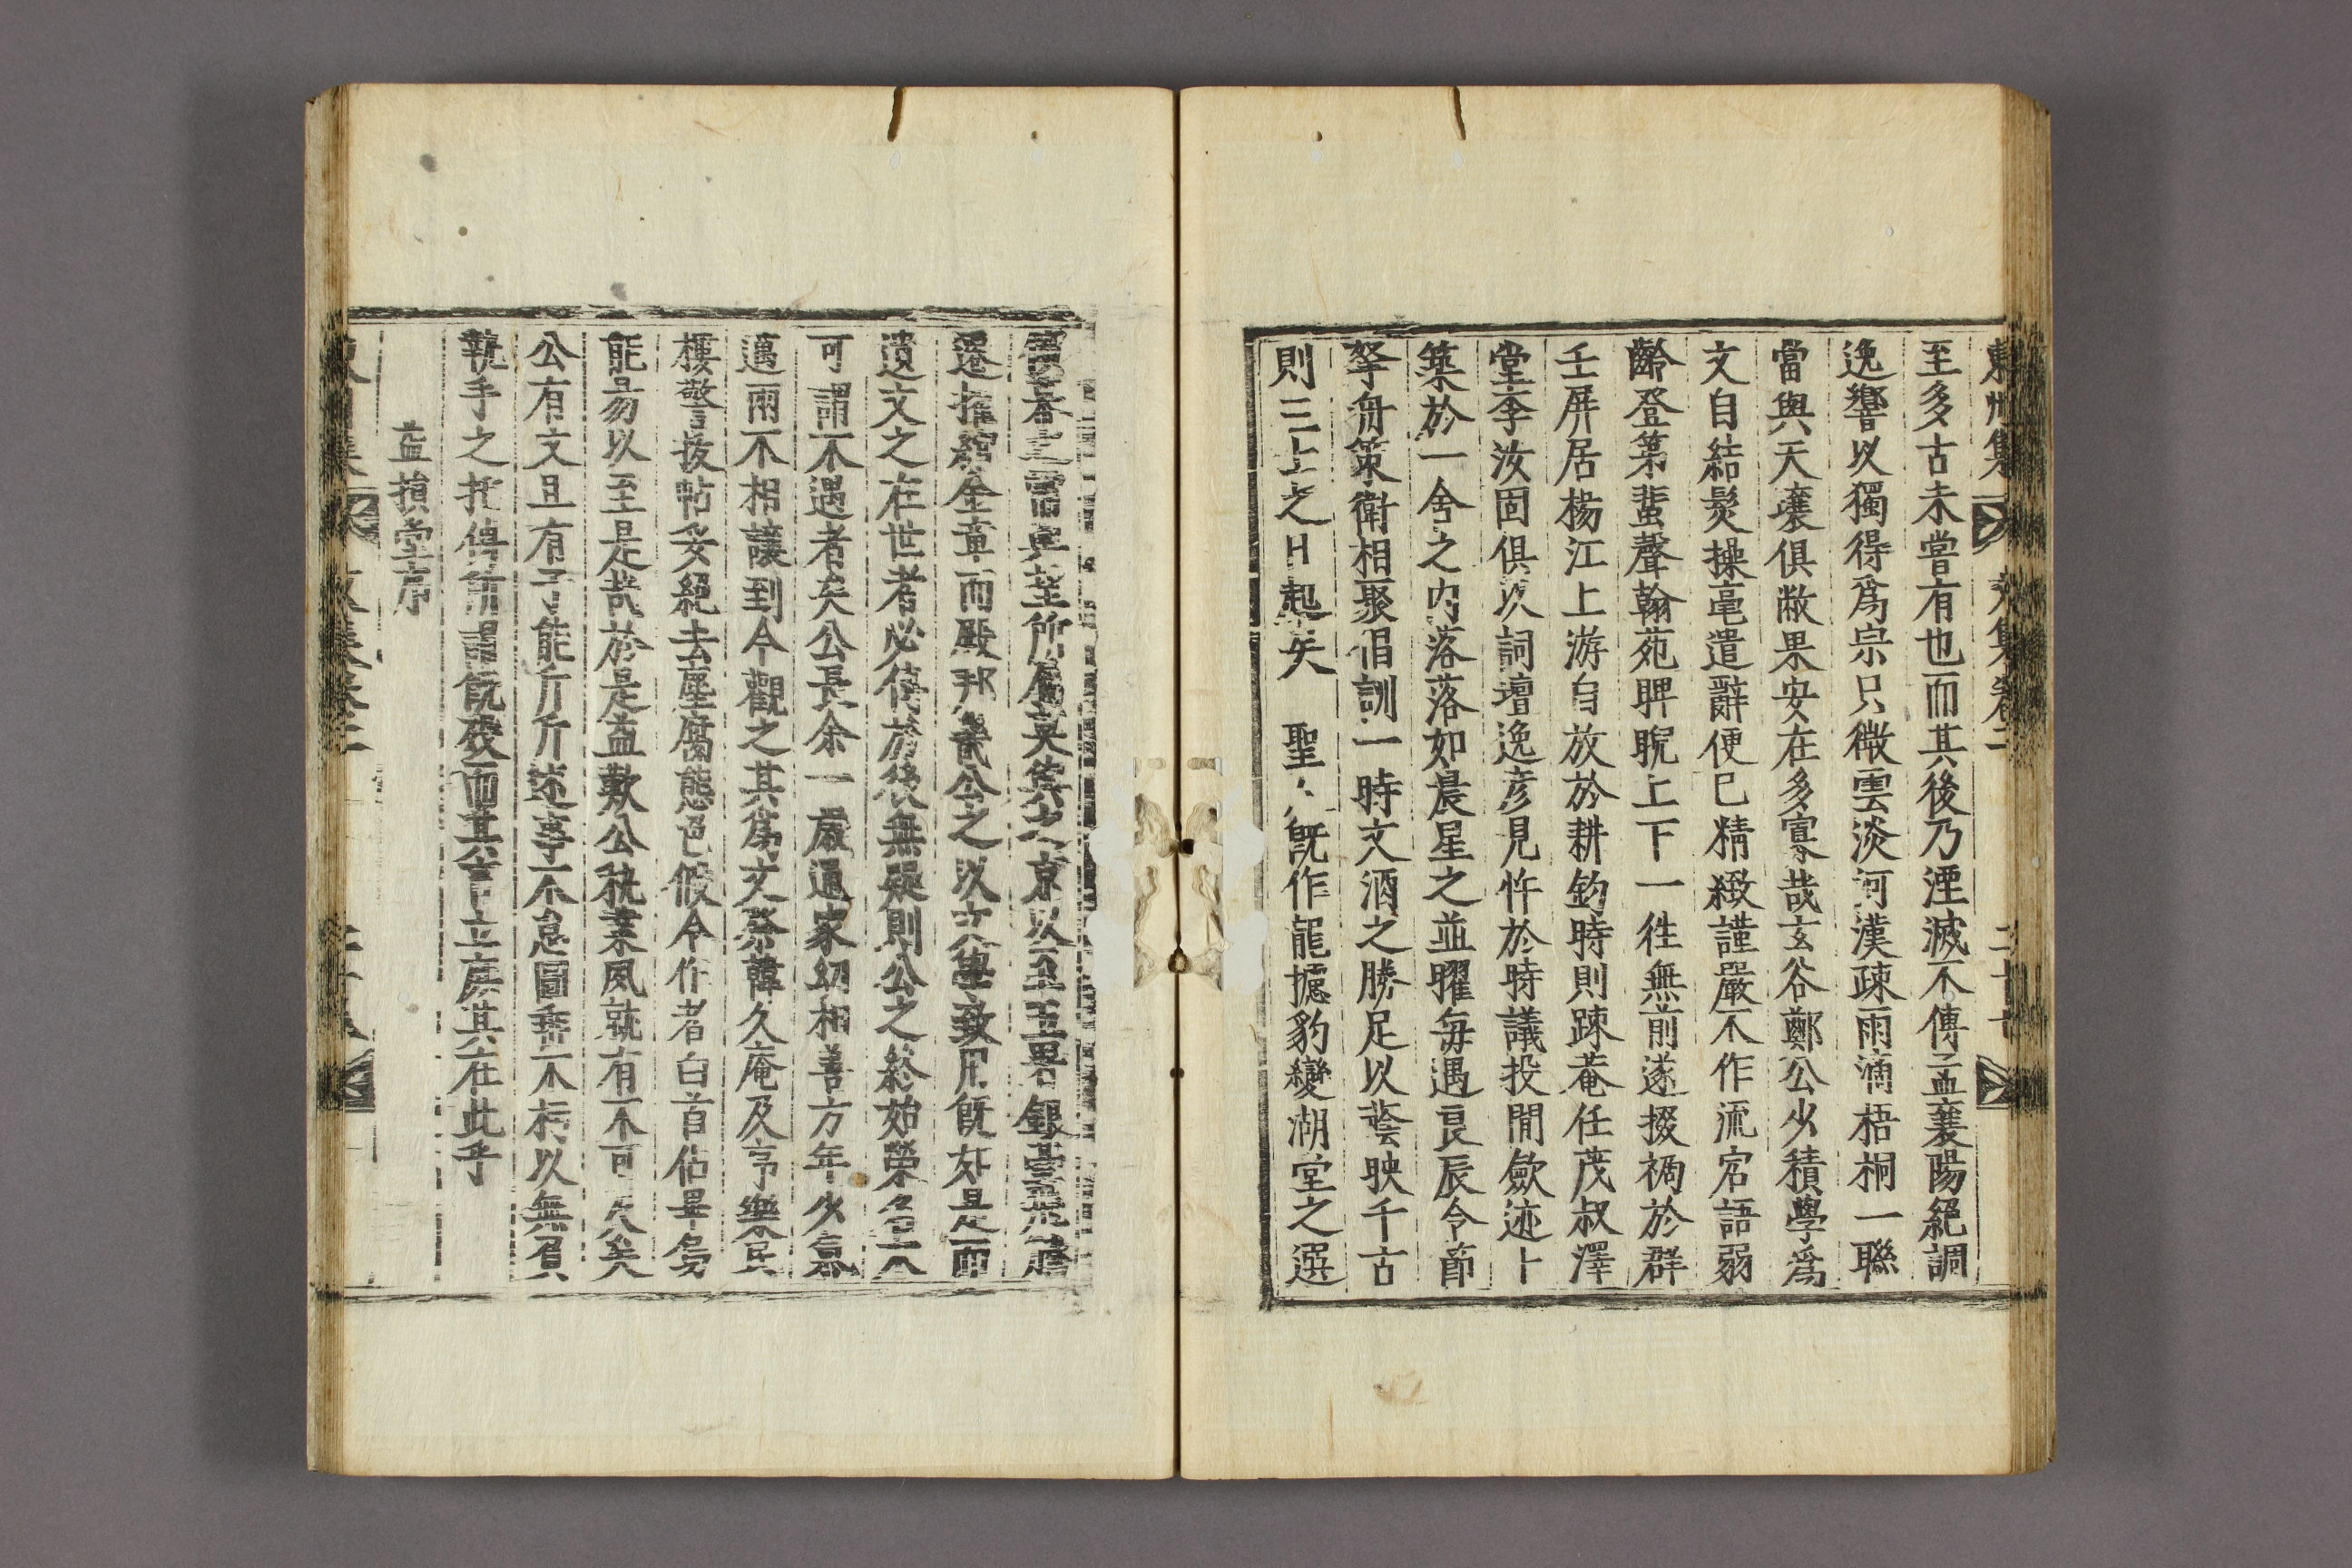 東州集 文集卷二 二十七
至多古未嘗有也而其後乃湮滅不傳孟襄陽絕調
逸響以獨得爲宗只微雲淡河漢疎雨滴梧桐一聯
當與天壤俱敝果安在多寡哉玄谷鄭公少積學爲
文自結髮操毫遣辭便已精緻謹嚴不作流宕語弱
齡登第蜚聲翰苑睥睨上下一往無前遂掇禍於群
壬屏居楊江上游自放於耕釣時則踈菴任茂叔澤
堂李汝固俱以詞壇逸彦見忤於時議投閒歛迹卜
築於一舍之內落落如晨星之並曜每遇良辰令節
拏舟策衛相聚倡訓一時文酒之勝足以蔭映千古
則三上之 起矣 聖人旣作龍攄豹變湖堂之選
遷擢綰金章而殿邦畿公之以文藝致用旣如是而
遺文之在世者必傳於後無疑則公之終始榮名不
可謂不遇者矣公長余一歲通家幼相善方年少氣
邁兩不相讓到今觀之其爲文祭韓久庵及亭樂民
樓警拔帖妥絕去塵腐態色假令作者白首佔畢烏
能易以至是哉於是益歎公執業夙就有不可及矣
公有文且有子能斤斤述事不怠圖垂不朽以無負
執手之托傳所謂旣歿而其言立庶其在此乎
益損堂序